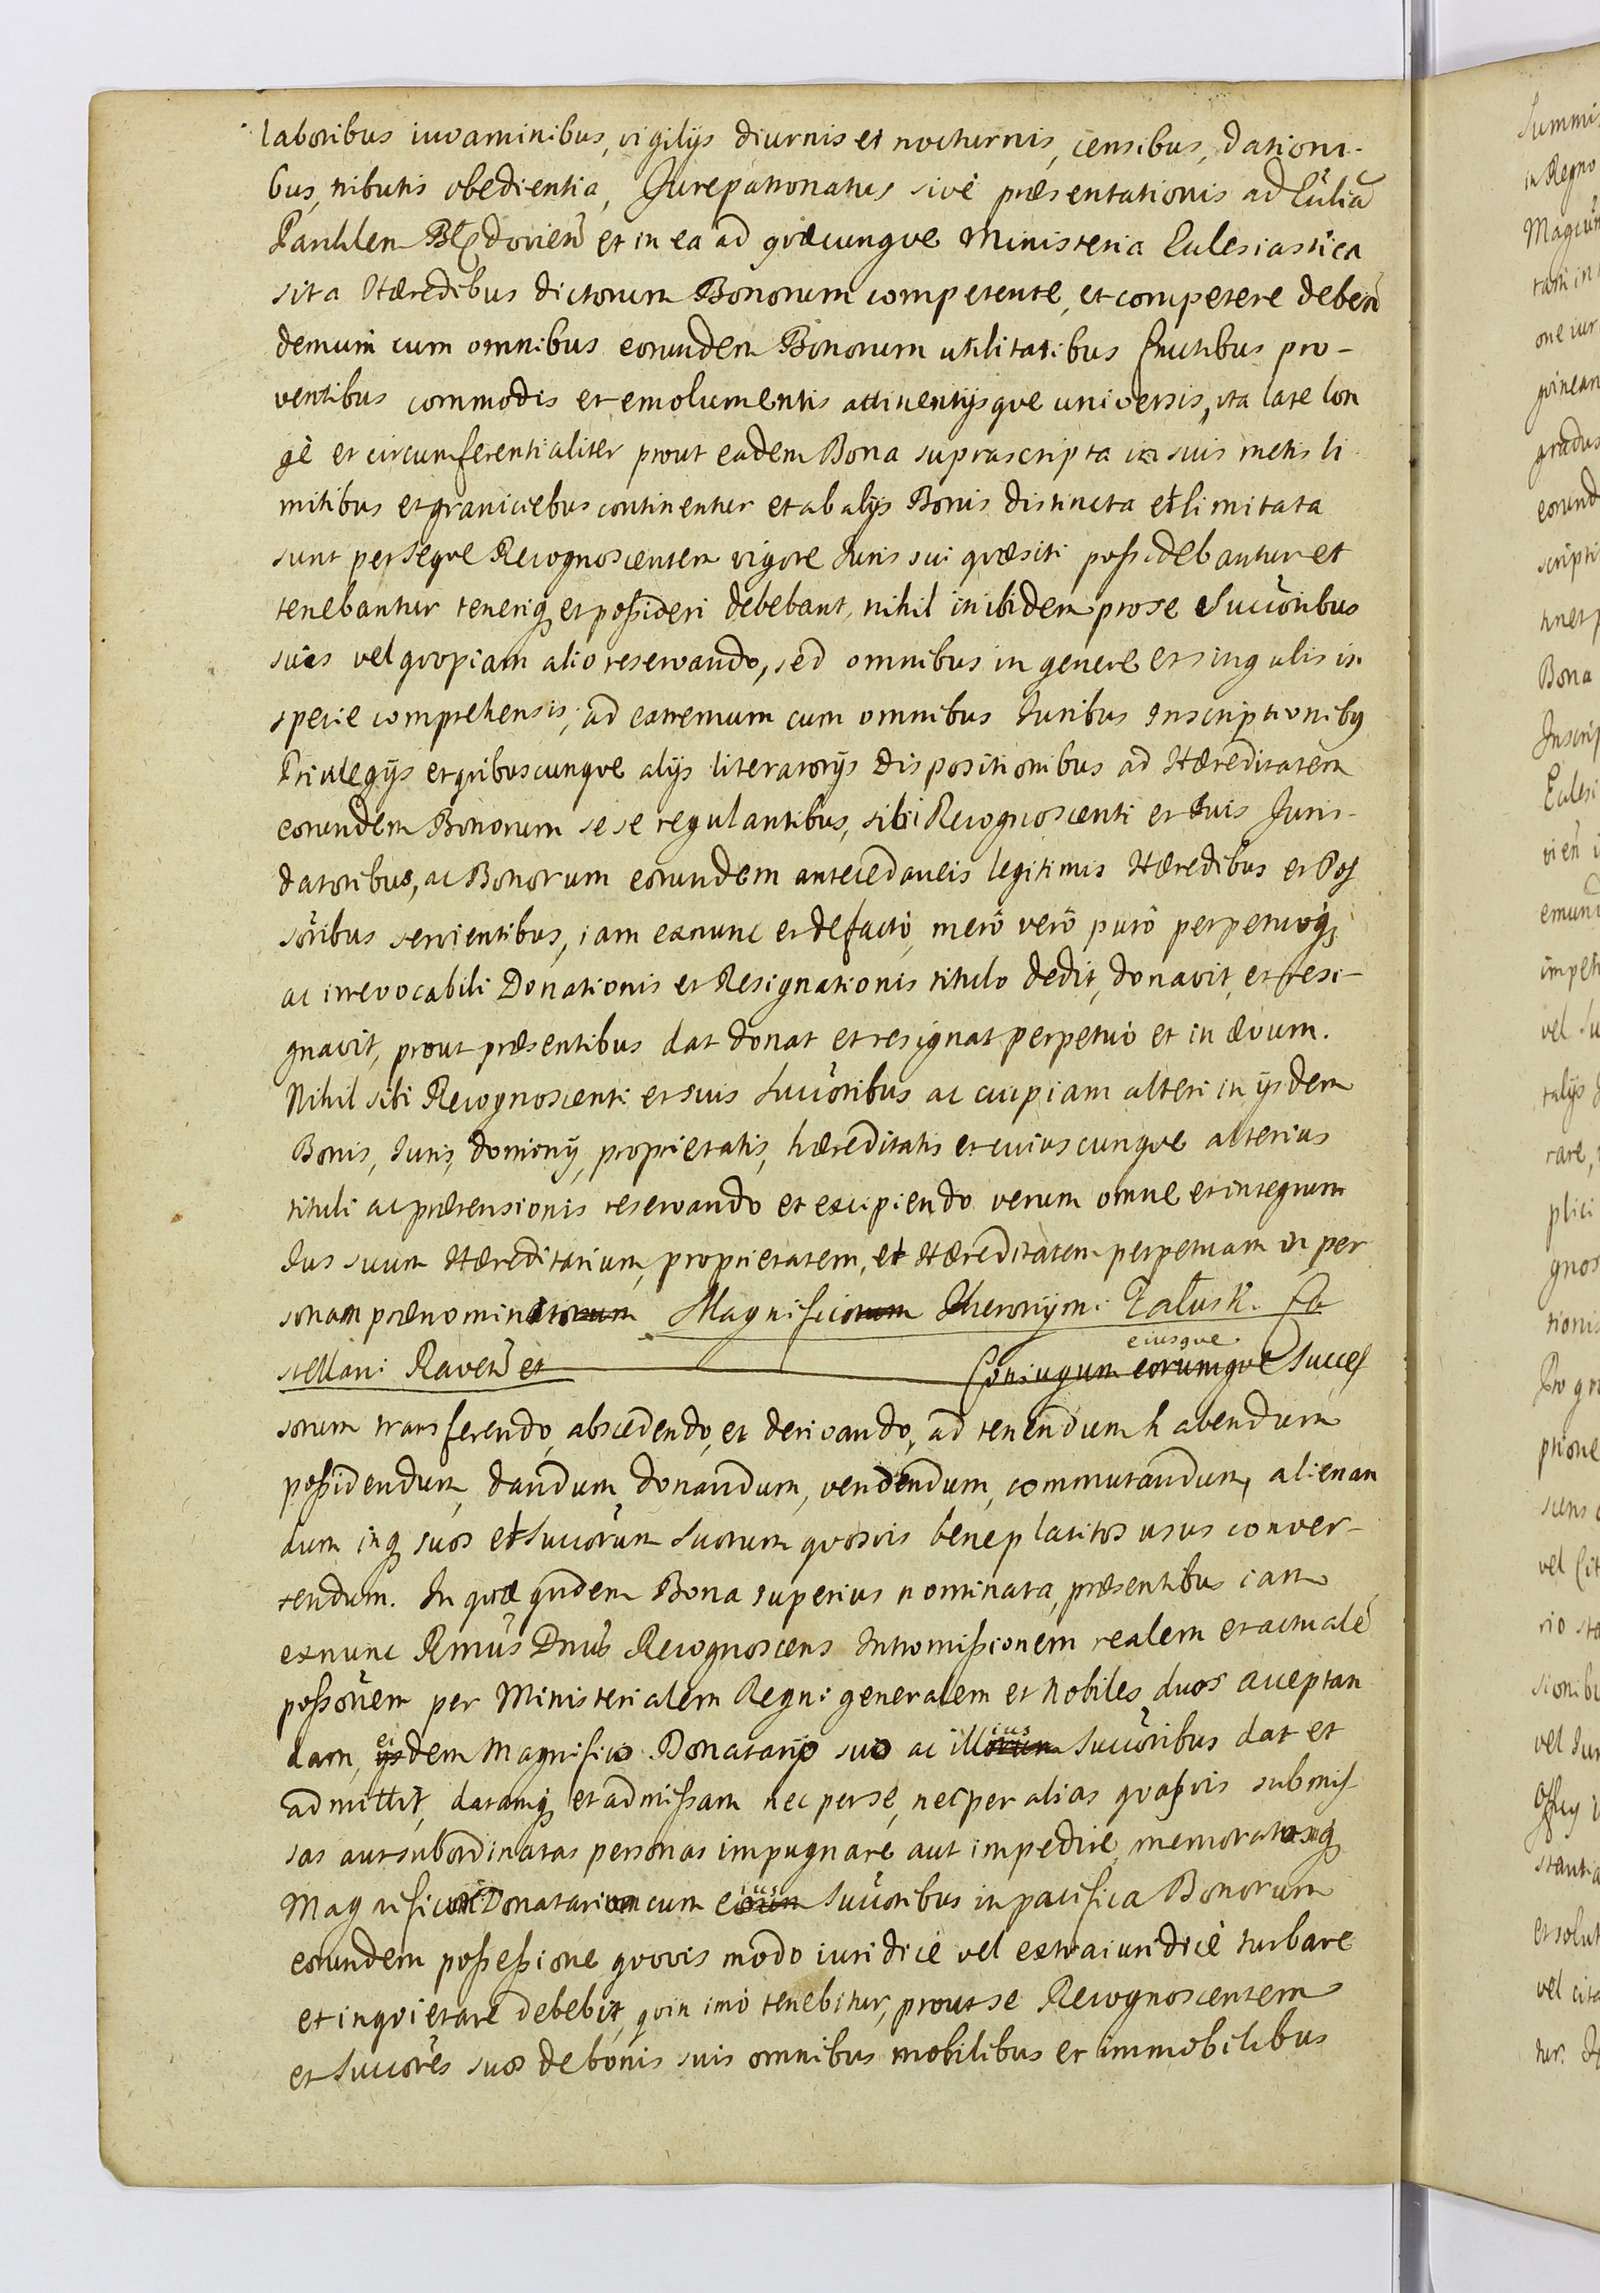 laboribus iuvaminibus, vigilijs diurnis et nocturnis, censibus, dationi-
bus, tributis obedientia, Iurepatronatus sivè præsentationis ad Ecclia
et in ea ad qvæcunqve Ministeria Ecclesiastica
sita Hæredibus dictorum Bonorum competente, et competere deben
demum cum omnibus eorundem Bonorum utilitatibus fructibus pro-
ventibus commodis et emolumentis attinentijsqve universis, ita late lon
gè et circumferentialiter prout eadem Bona suprascripta in suis metis li
mitibus et graniciebus continentur et ab alijs Bonis distincta et limitata
sunt per seqve Recognoscentem vigore Iuris sui qvæsiti possidebantur et
tenebantur teneriq et possideri debebant, nihil inibidem pro se Succoribus
suis vel qvopiam alio reservando, sed omnibus in genere et singulis in
specie comprehensis, ad extremum cum omnibus Iuribus Inscriptionibq
Privilegijs et qvibuscunqve alijs literatorijs dispositionibus ad Hæreditatem
eorundem Bonorum sese regulantibus, sibi Recognoscenti et suis Juris-
datoribus, ac Bonorum eorundem antecedaneis legitimis Hæredibus et Pos
soribus servientibus, iam exnunc et defacto, merô verô purô perpetuoq
ac irrevocabili Donationis et Resignationis titulo dedit, donavit, et resi-
gnavit, prout præsentibus dat donat et resignat perpetuò et in ævum.
Nihil sibi Recognoscenti et suis Succoribus ac cuipiam alteri in ijsdem
Bonis, Iuris, dominij, proprietatis, hæreditatis et cuiuscunqve alterius
tituli ac prætensionis reservando et excipiendo verum omne et integrum
Ius suum Hæreditarium, proprietatem, et Hæreditatem perpetuam in per
sonam prænominatorum Magnificorum Hieronijmi Załuski Ca
stellani Raven et
eiusque
Coniugum eorumqve Succes
sorum transferendo, abscedendo, et derivando, ad tenendum habendum
possidendum, dandum donandum, vendendum, commutandum, alienan
dum inq suos et Succorum Suorum qvosvis beneplacitos usus conver-
tendum. In qvæ qvidem Bona superius nominata, præsentibus iam
exnunc Rmus Dnus Recognoscens Intromissionem realem et actuale
possonem per Ministerialem Regni generalem et Nobiles duos acceptan
ei ius
dam, ijsdem Magnifico Donatario suo ac illorum Succoribus dat et
admittit, datamq et admissam nec per se, nec per alias qvasvis submis
sas aut subordinatas personas impugnare aut impedire, memoratosq
ius
Magnificum Donatarium cum eorum Succoribus in pacifica Bonorum
eorundem possessione qvovis modo iuridicè vel extraiuridicè turbare
et inqvietare debebit, qvin imò tenebitur, prout se Recognoscentem
et Succores suos de bonis suis omnibus mobilibus et immobilibus